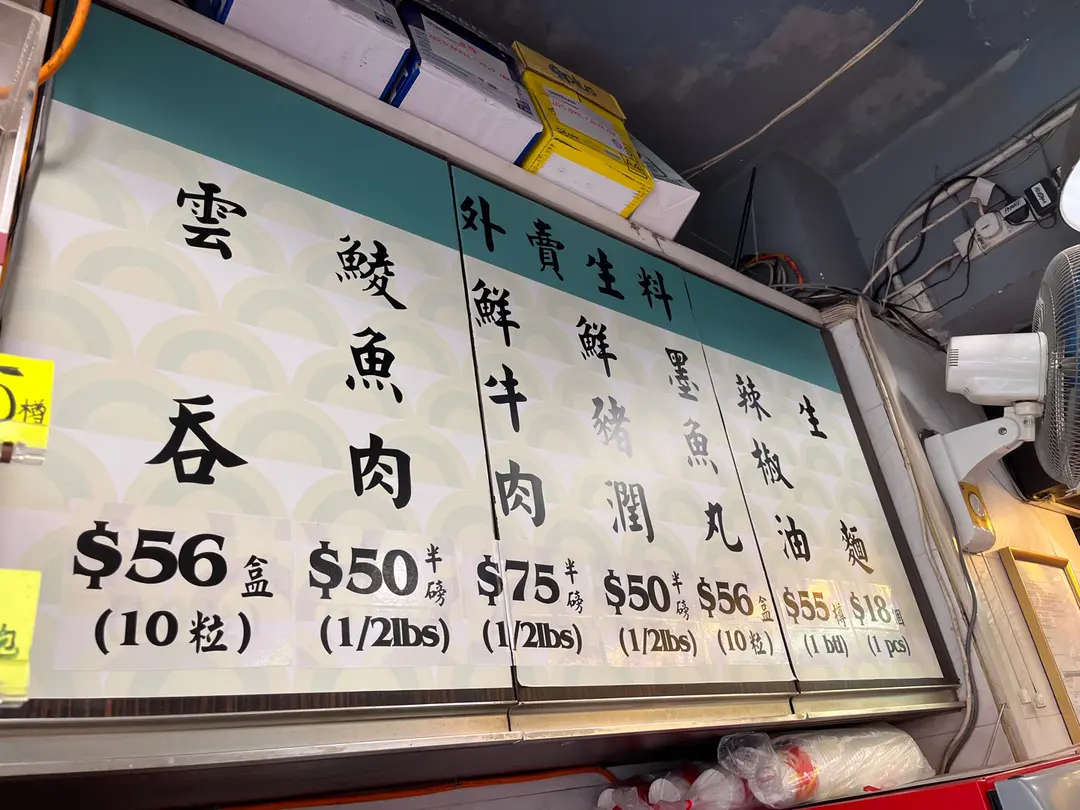 外賣生料
雲吞
$56盒
(10粒)
鯪魚肉
$50半磅
(1/2lbs)
鮮牛肉
$75半磅
(1/2lbs)
鮮豬潤
$50半磅
(1/2lbs)
墨魚丸
$56盒
(10粒)
辣椒油
$55樽
(1 btl)
生麵
$18個
(1 pcs)
樽